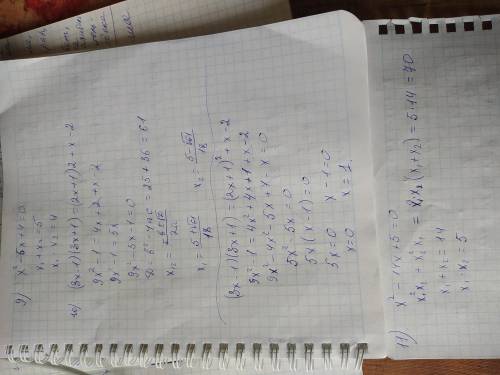 9) x² - 5x + 4 = 0
x₁ + x₂ = 5
x₁ · x₂ = 4
10) (3x-1)(3x+1) = (2x+1)2 + x - 2
9x² - 1 = 4x + 2 + x - 2
9x² - 1 = 5x
9x² - 5x - 1 = 0
D = b² - 4ac = 25 + 36 = 61
x₁ = (5+√61)/18 x₂ = (5-√61)/18
(3x-1)(3x+1) = (2x+1)² + x - 2
9x² - 1 = 4x² + 4x + 1 + x - 2
5x² - 5x = 0
5x(x-1) = 0
5x = 0 x - 1 = 0
x = 0 x = 1
11) x² - 14x + 5 = 0
x₁²x₂ + x₂²x₁ = x₁x₂(x₁+x₂) = 5·14 = 70.
x₁ + x₂ = 14
x₁ · x₂ = 5